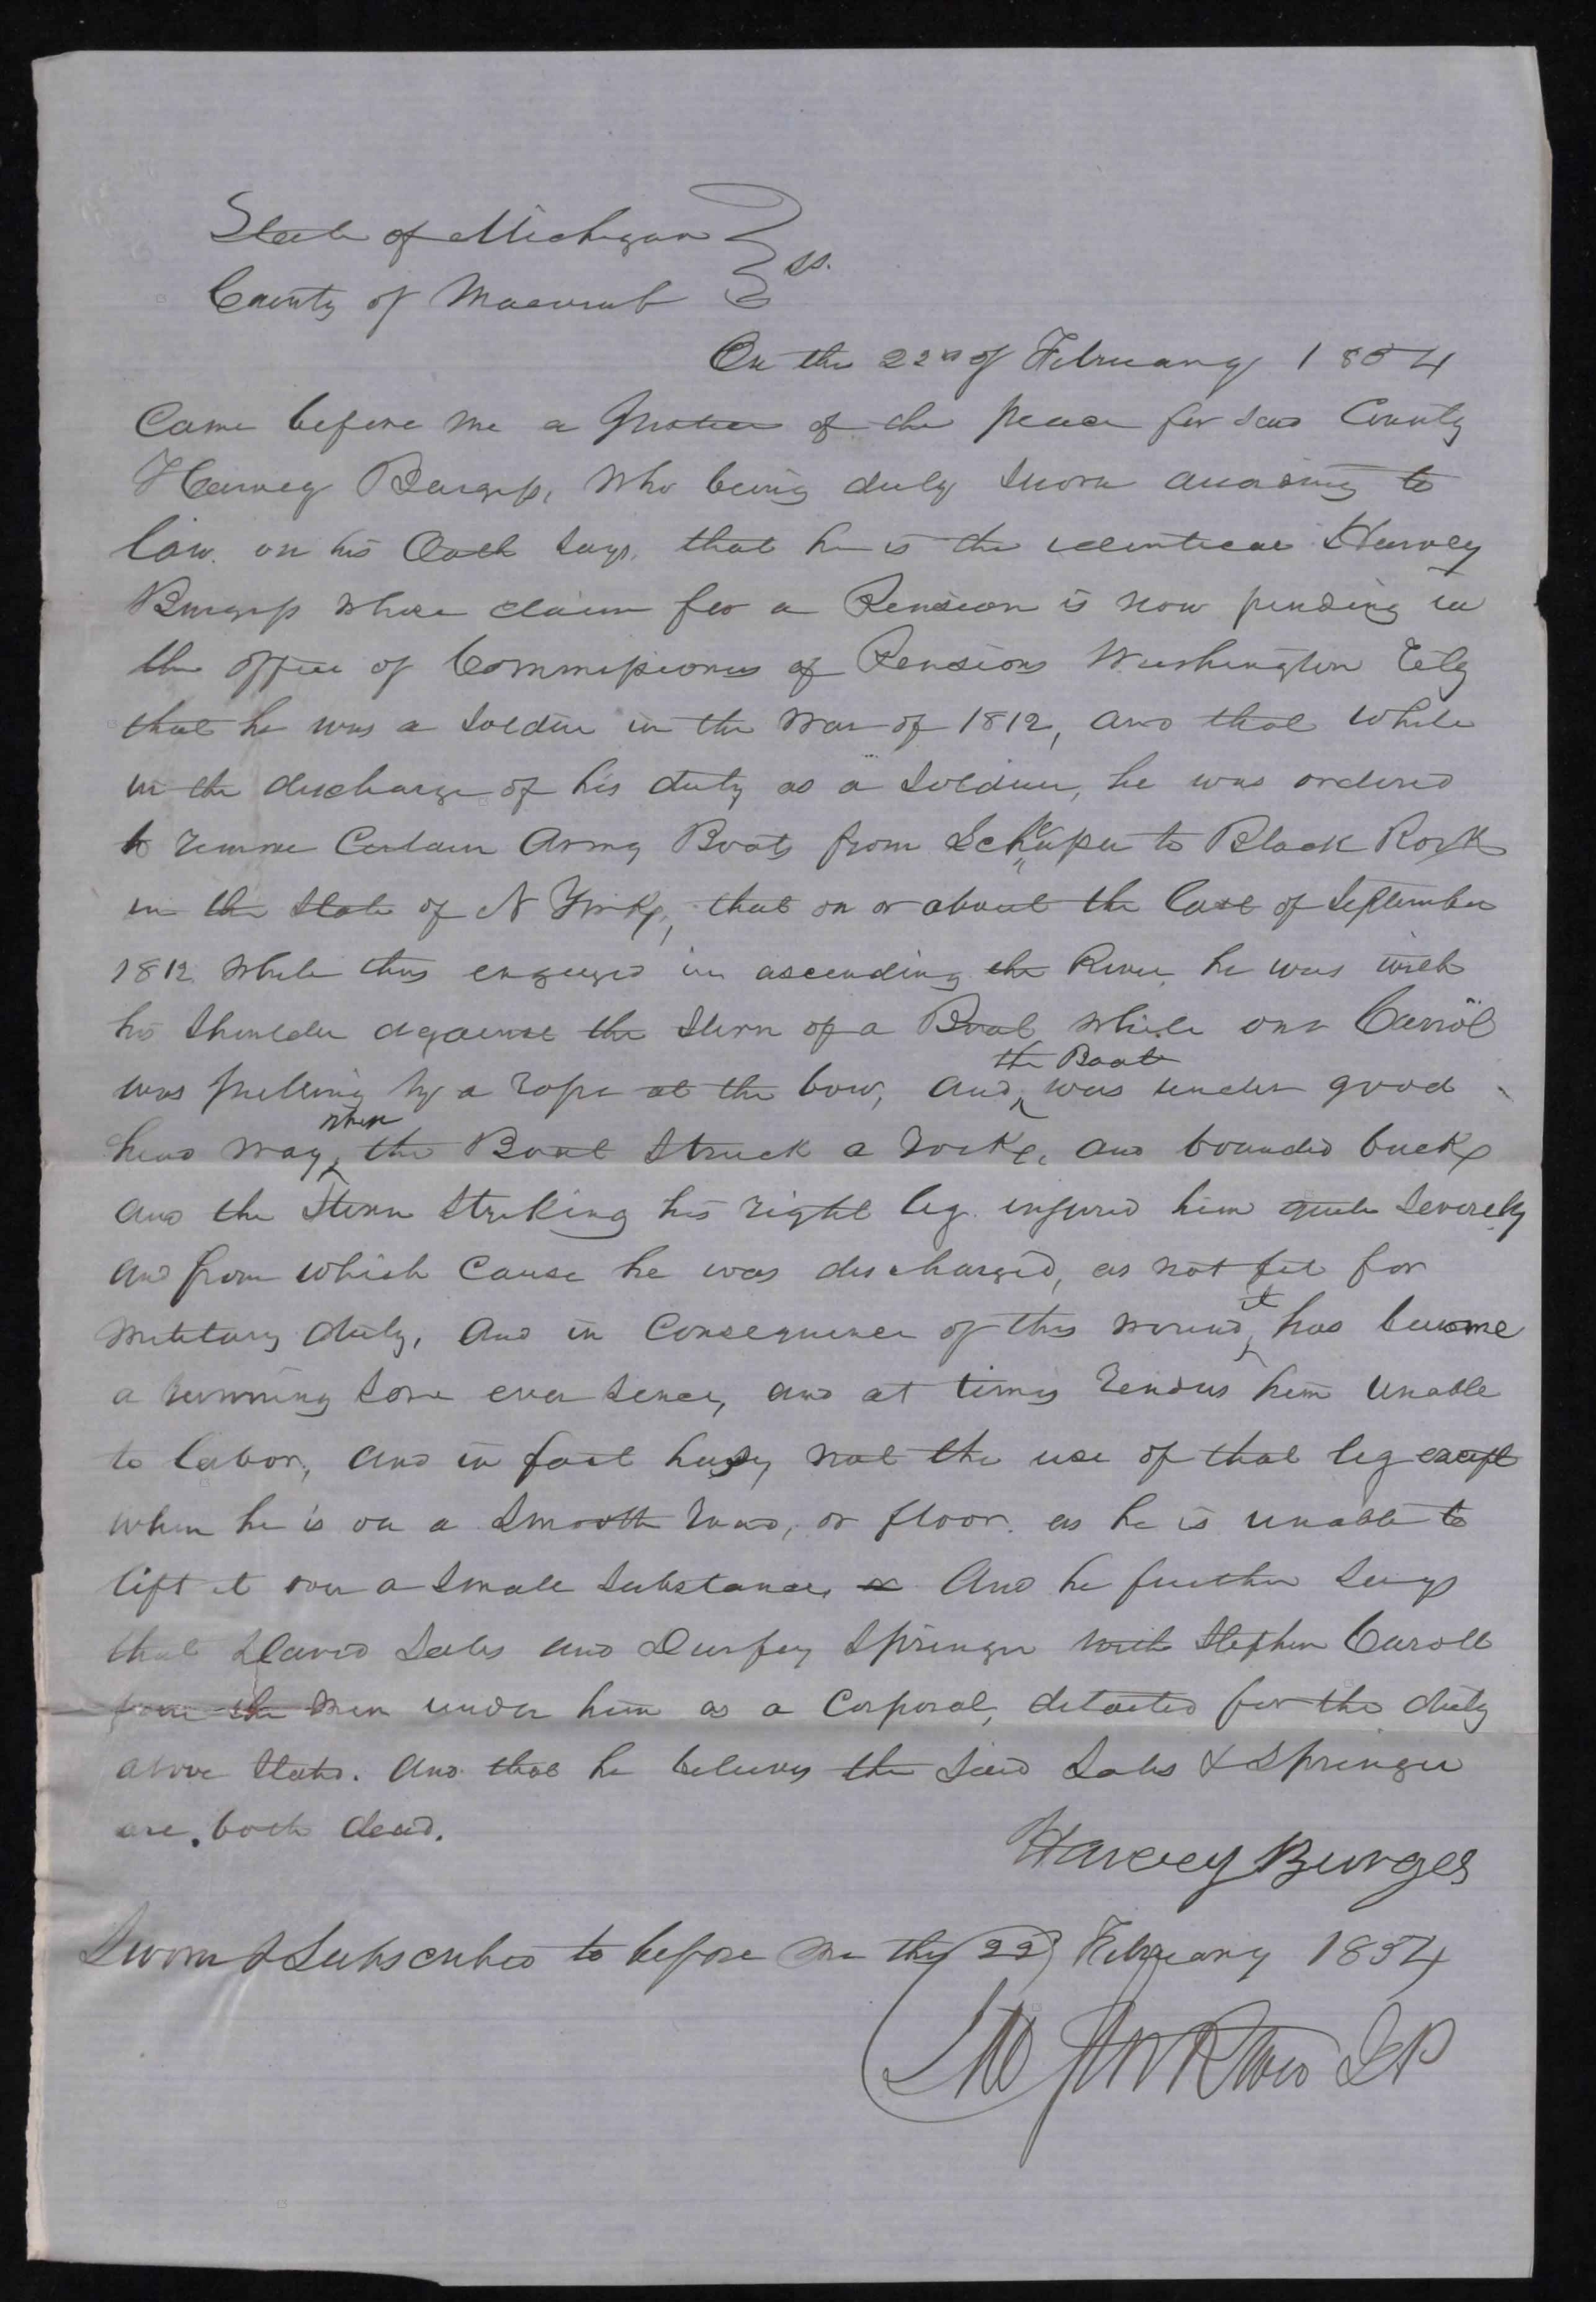 State of Michigan } ss.
County of Macomb }
On the 22nd of February 1854
Came before me a Justice of the peace for said County
Harvey Burgess, who being duly sworn according to
law. on his Oath says, that he is the identical Harvey
Burgess whose claim for a Pension is now pending in
the office of Commissioners of Pensions Washington City
that he was a Soldier in the War of 1812, and that while
in the discharge of his duty as a Soldier, he was ordered
to remove Certain Army Boats from to Black Rock
in the State of N York, that on or about the last of September
1812 while thus engaged in ascending the River he was with
his shoulder against the Stern of a Boat while one Carrol
was pulling by a rope at the bow, and the Boat was under good
head way when the Boat Struck a rock, and bounded back
and the Stern Striking his right leg injured him quite Severely
and from which Cause he was discharged, as not fit for
Military duty, And in Consequence of this wound it has become
a running Sore ever Since, and at times renders him Unable
to labor, and in fact has not the use of that leg except
when he is on a Smooth road, or floor. as he is unable to
lift it over a Small Substance, And he further Says
that David Sales and Durfey Springer with Stephen Caroll
were the Men under him as a Corporal, detailed for the duty
above Stated. And that he believes the Said Sales & Springer
are both dead.
Harvey Burges
Sworn & Subscribed to before me this 22d February 1854
JP